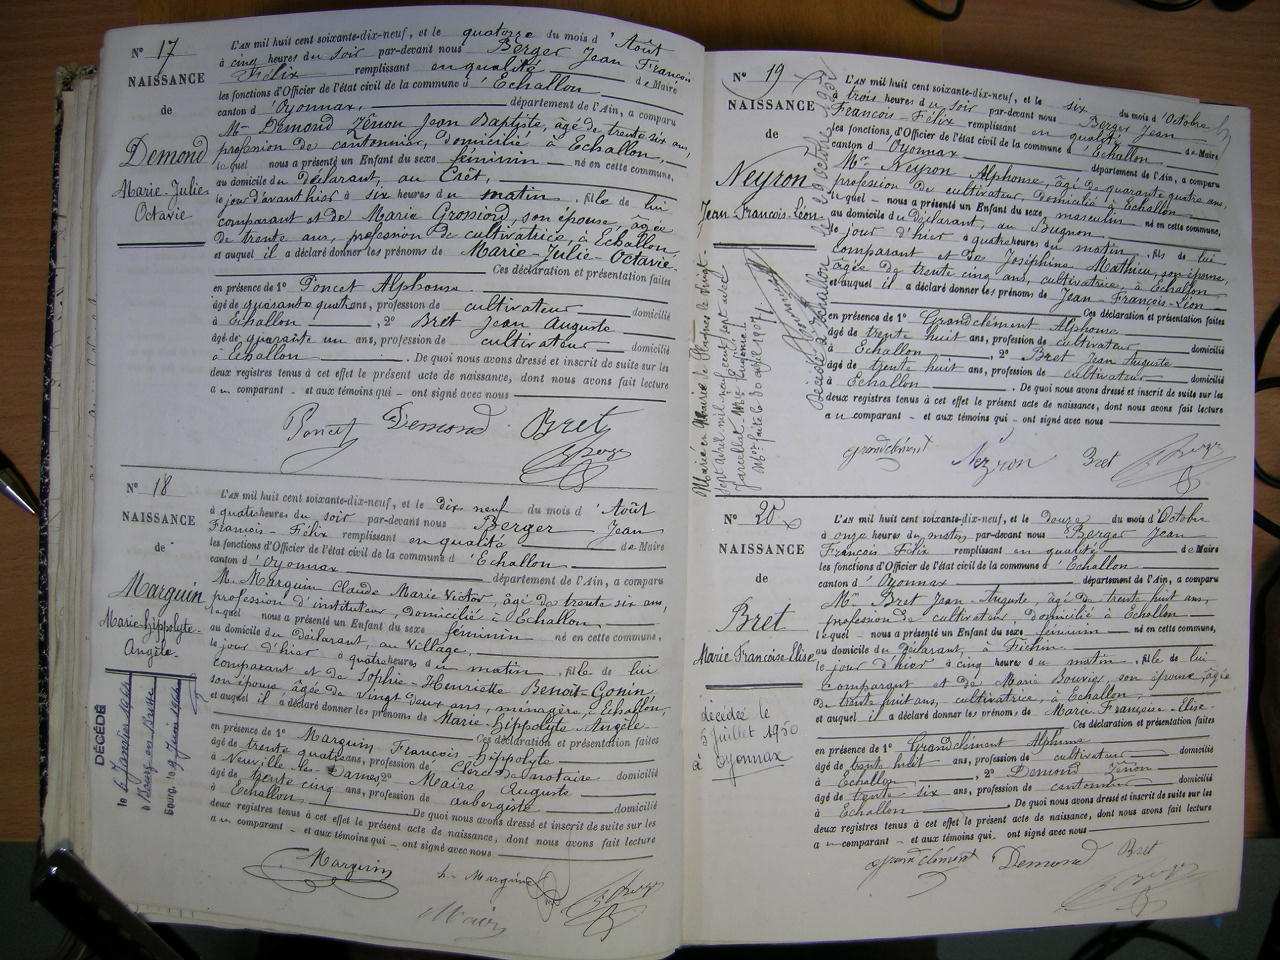 N° 17
NAISSANCE
de
Demond
Marie-Julie
Octavie
L'AN mil huit cent soixante-dix-neuf, et le quatorze du mois d'Août
à cinq heures du soir par-devant nous Berger Jean François
Félix remplissant en qualité de Maire
les fonctions d'Officier de l'état civil de la commune d'Echallon
canton d'Oyonnax, département de l'Ain, a comparu
Mr Demond Zénon Jean Baptiste, âgé de trente six ans,
profession de cantonnier, domicilié à Echallon,
lequel nous a présenté un Enfant du sexe féminin né en cette commune,
au domicile du déclarant, au Crêt,
le jour d'avant hier à six heures du matin, fille de lui
comparant et de Marie Grossiord, son épouse, âgée
de trente ans, profession de cultivatrice, à Echallon
et auquel il a déclaré donner les prénoms de Marie-Julie-Octavie.
Ces déclaration et présentation faites
en présence de 1° Poncet Alphonse
âgé de quarante quatre ans, profession de cultivateur domicilié
à Echallon, 2° Bret Jean Auguste
âgé de quarante un ans, profession de cultivateur domicilié
à Echallon. De quoi nous avons dressé et inscrit de suite sur les
deux registres tenus à cet effet le présent acte de naissance, dont nous avons fait lecture
au comparant et aux témoins qui ont signé avec nous
Poncet Demond Bret
Berger
N° 18
NAISSANCE
de
Marguin
Marie-hippolyte-
Angèle
DÉCÉDÉ
L'AN mil huit cent soixante-dix-neuf, et le dix neuf du mois d'Août
à quatre heures du soir par-devant nous Berger Jean
François-Félix remplissant en qualité de Maire
les fonctions d'Officier de l'état civil de la commune d'Echallon
canton d'Oyonnax département de l'Ain, a comparu
M. Marguin Claude Marie Victor, âgé de trente six ans,
profession d'instituteur, domicilié à Echallon,
lequel nous a présenté un Enfant du sexe féminin né en cette commune,
au domicile du Déclarant, au Village,
le jour d'hier à quatre heures du matin, fille de lui
comparant et de Sophie-Henriette Benoit-Gonin,
son épouse, âgée de vingt deux ans, ménagère, à Echallon,
et auquel il a déclaré donner les prénoms de Marie-hippolyte-Angèle
Ces déclaration et présentation faites
en présence de 1° Marguin François hippolyte
âgé de trente quatre ans, profession de Clerc de notaire domicilié
à Neuville les Dames 2° Maire Auguste
âgé de trente cinq ans, profession de aubergiste domicilié
à Echallon. De quoi nous avons dressé et inscrit de suite sur les
deux registres tenus à cet effet le présent acte de naissance, dont nous avons fait lecture
au comparant et aux témoins qui ont signé avec nous
Marguin
h. Marguin
Maire
Berger
N° 19
NAISSANCE
de
Neyron
Jean François-Léon
Décédé à Echallon le 20 octobre
L'AN mil huit cent soixante-dix-neuf, et le six du mois d'Octobre
à trois heures du soir par-devant nous Berger Jean
François-Félix remplissant en qualité de Maire
les fonctions d'Officier de l'état civil de la commune d'Echallon
canton d'Oyonnax département de l'Ain, a comparu
Mr Neyron Alphonse, âgé de quarante quatre ans,
profession de cultivateur, domicilié à Echallon
lequel nous a présenté un Enfant du sexe masculin né en cette commune,
au domicile du Déclarant, au Bugnon
le jour d'hier à quatre heures du matin, fils de lui
comparant et de Joséphine Mathieu, son épouse,
âgée de trente cinq ans, cultivatrice, à Echallon
et auquel il a déclaré donner les prénoms de Jean-François-Léon
Ces déclaration et présentation faites
en présence de 1° Grandclément Alphonse
âgé de trente huit ans, profession de cultivateur domicilié
à Echallon, 2° Bret Jean Auguste
âgé de trente huit ans, profession de cultivateur domicilié
à Echallon. De quoi nous avons dressé et inscrit de suite sur les
deux registres tenus à cet effet le présent acte de naissance, dont nous avons fait lecture
au comparant et aux témoins qui ont signé avec nous
grandclément Neyron Bret Berger
N° 20
NAISSANCE
de
Bret
Marie Françoise-Elise
décédée le
juillet 1950
Oyonnax
L'AN mil huit cent soixante-dix-neuf, et le douze du mois d'Octobre
à onze heures du matin par-devant nous Berger Jean
François Félix remplissant en qualité de Maire
les fonctions d'Officier de l'état civil de la commune d'Echallon
canton d'Oyonnax département de l'Ain, a comparu
Mr Bret Jean-Auguste, âgé de trente huit ans,
profession de cultivateur, domicilié à Echallon
lequel nous a présenté un Enfant du sexe féminin né en cette commune,
au domicile du Déclarant, à
le jour d'hier à cinq heures du matin, fille de lui
comparant et de Marie Bouvier, son épouse, âgée
de trente huit ans, cultivatrice, à Echallon
et auquel il a déclaré donner les prénoms de Marie Françoise-Elise-
Ces déclaration et présentation faites
en présence de 1° Grandclément Alphonse
âgé de trente huit ans, profession de cultivateur domicilié
à Echallon, 2° Demond Zénon
âgé de trente six ans, profession de cantonnier domicilié
à Echallon. De quoi nous avons dressé et inscrit de suite sur les
deux registres tenus à cet effet le présent acte de naissance, dont nous avons fait lecture
au comparant et aux témoins qui ont signé avec nous
grandclément Demond Bret
Berger